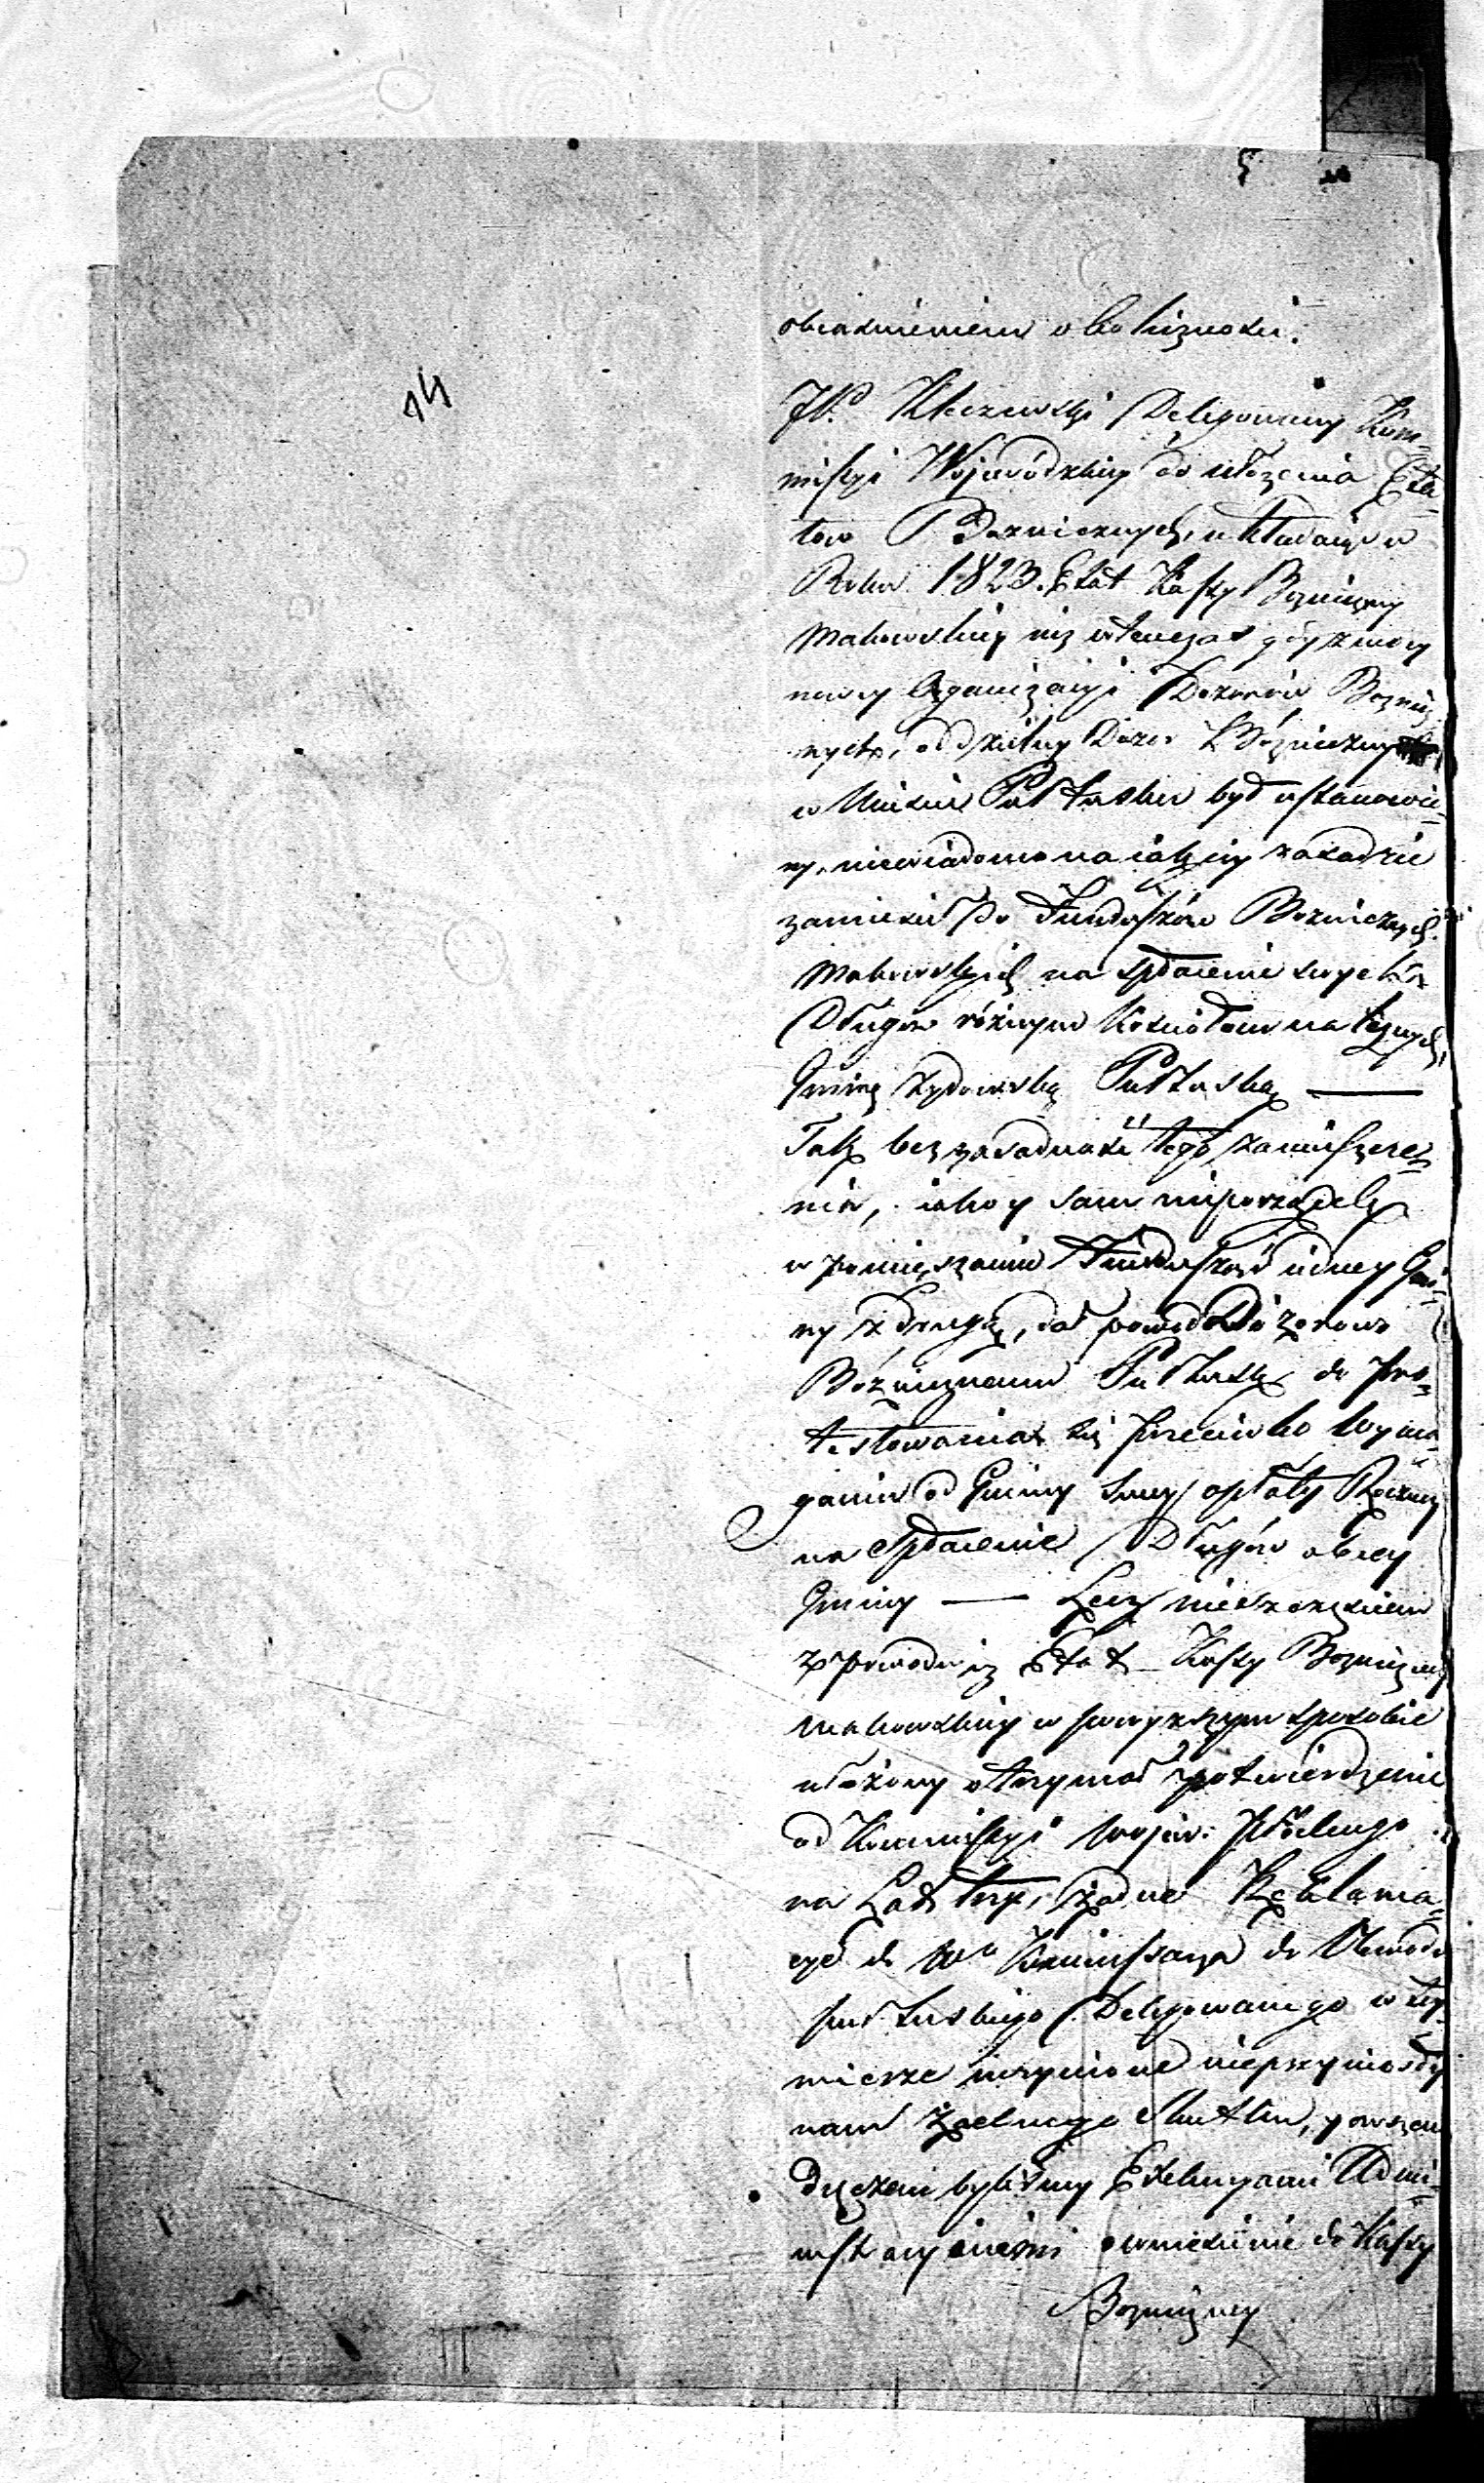 5
14
obiaśnieniem okoliczności.
JP. Kleczewski Delegowany Kom=
missyi Wojewódzkiey do ułożenia Eta=
tów Bożnicznych, układaiąc w
Roku 1823. Etat Kassy Bożniczney
Makowskiey iuż wtenczas gdy z mocy
nowey Organizacyi Dozorów Bożnicz
nych, oddzielny Dozór Bożniczny
w Mieście Pułtusku był ustanowio=
ny, niewiadomo na iakiey zasadzie
zamieścił do Funduszów Bożnicznych
Makowskich na spłacenie swych
Długów różnym Kościołom należnych,
Gminę Żydowską Pułtuską —
Tak bezzasadność tego zamieszcze=
nia, iako y sam nieporządek
w pomięszaniu Funduszów iedney Gmi=
ny z drugą, dał powód Dozorowi
Bożnicznemu Pułtusk. do pro=
testowania się przeciwko wyma=
ganiu od Gminy swey opłaty Roczney
na spłacenie Długów obcey
Gminy — Lecz nieszczęściem
z powodu iż Etat Kassy Bożniczney
Makowskiey w powyższym sposobie
ułożony otrzymał potwierdzenie
od Kommissyi Wojew: Płockiego
na Lat trzy, żadne Reklama=
cye do Wo Kommissarza do Obwodu
Pułtuskiego Delegowanego w tey
mierze uczynione nieprzyniosły
nam żadnego skutku, y owszem
dręczeni byliśmy Exekucyami Admi=
nistracyinemi o wniesienie do Kassy
Bożniczney